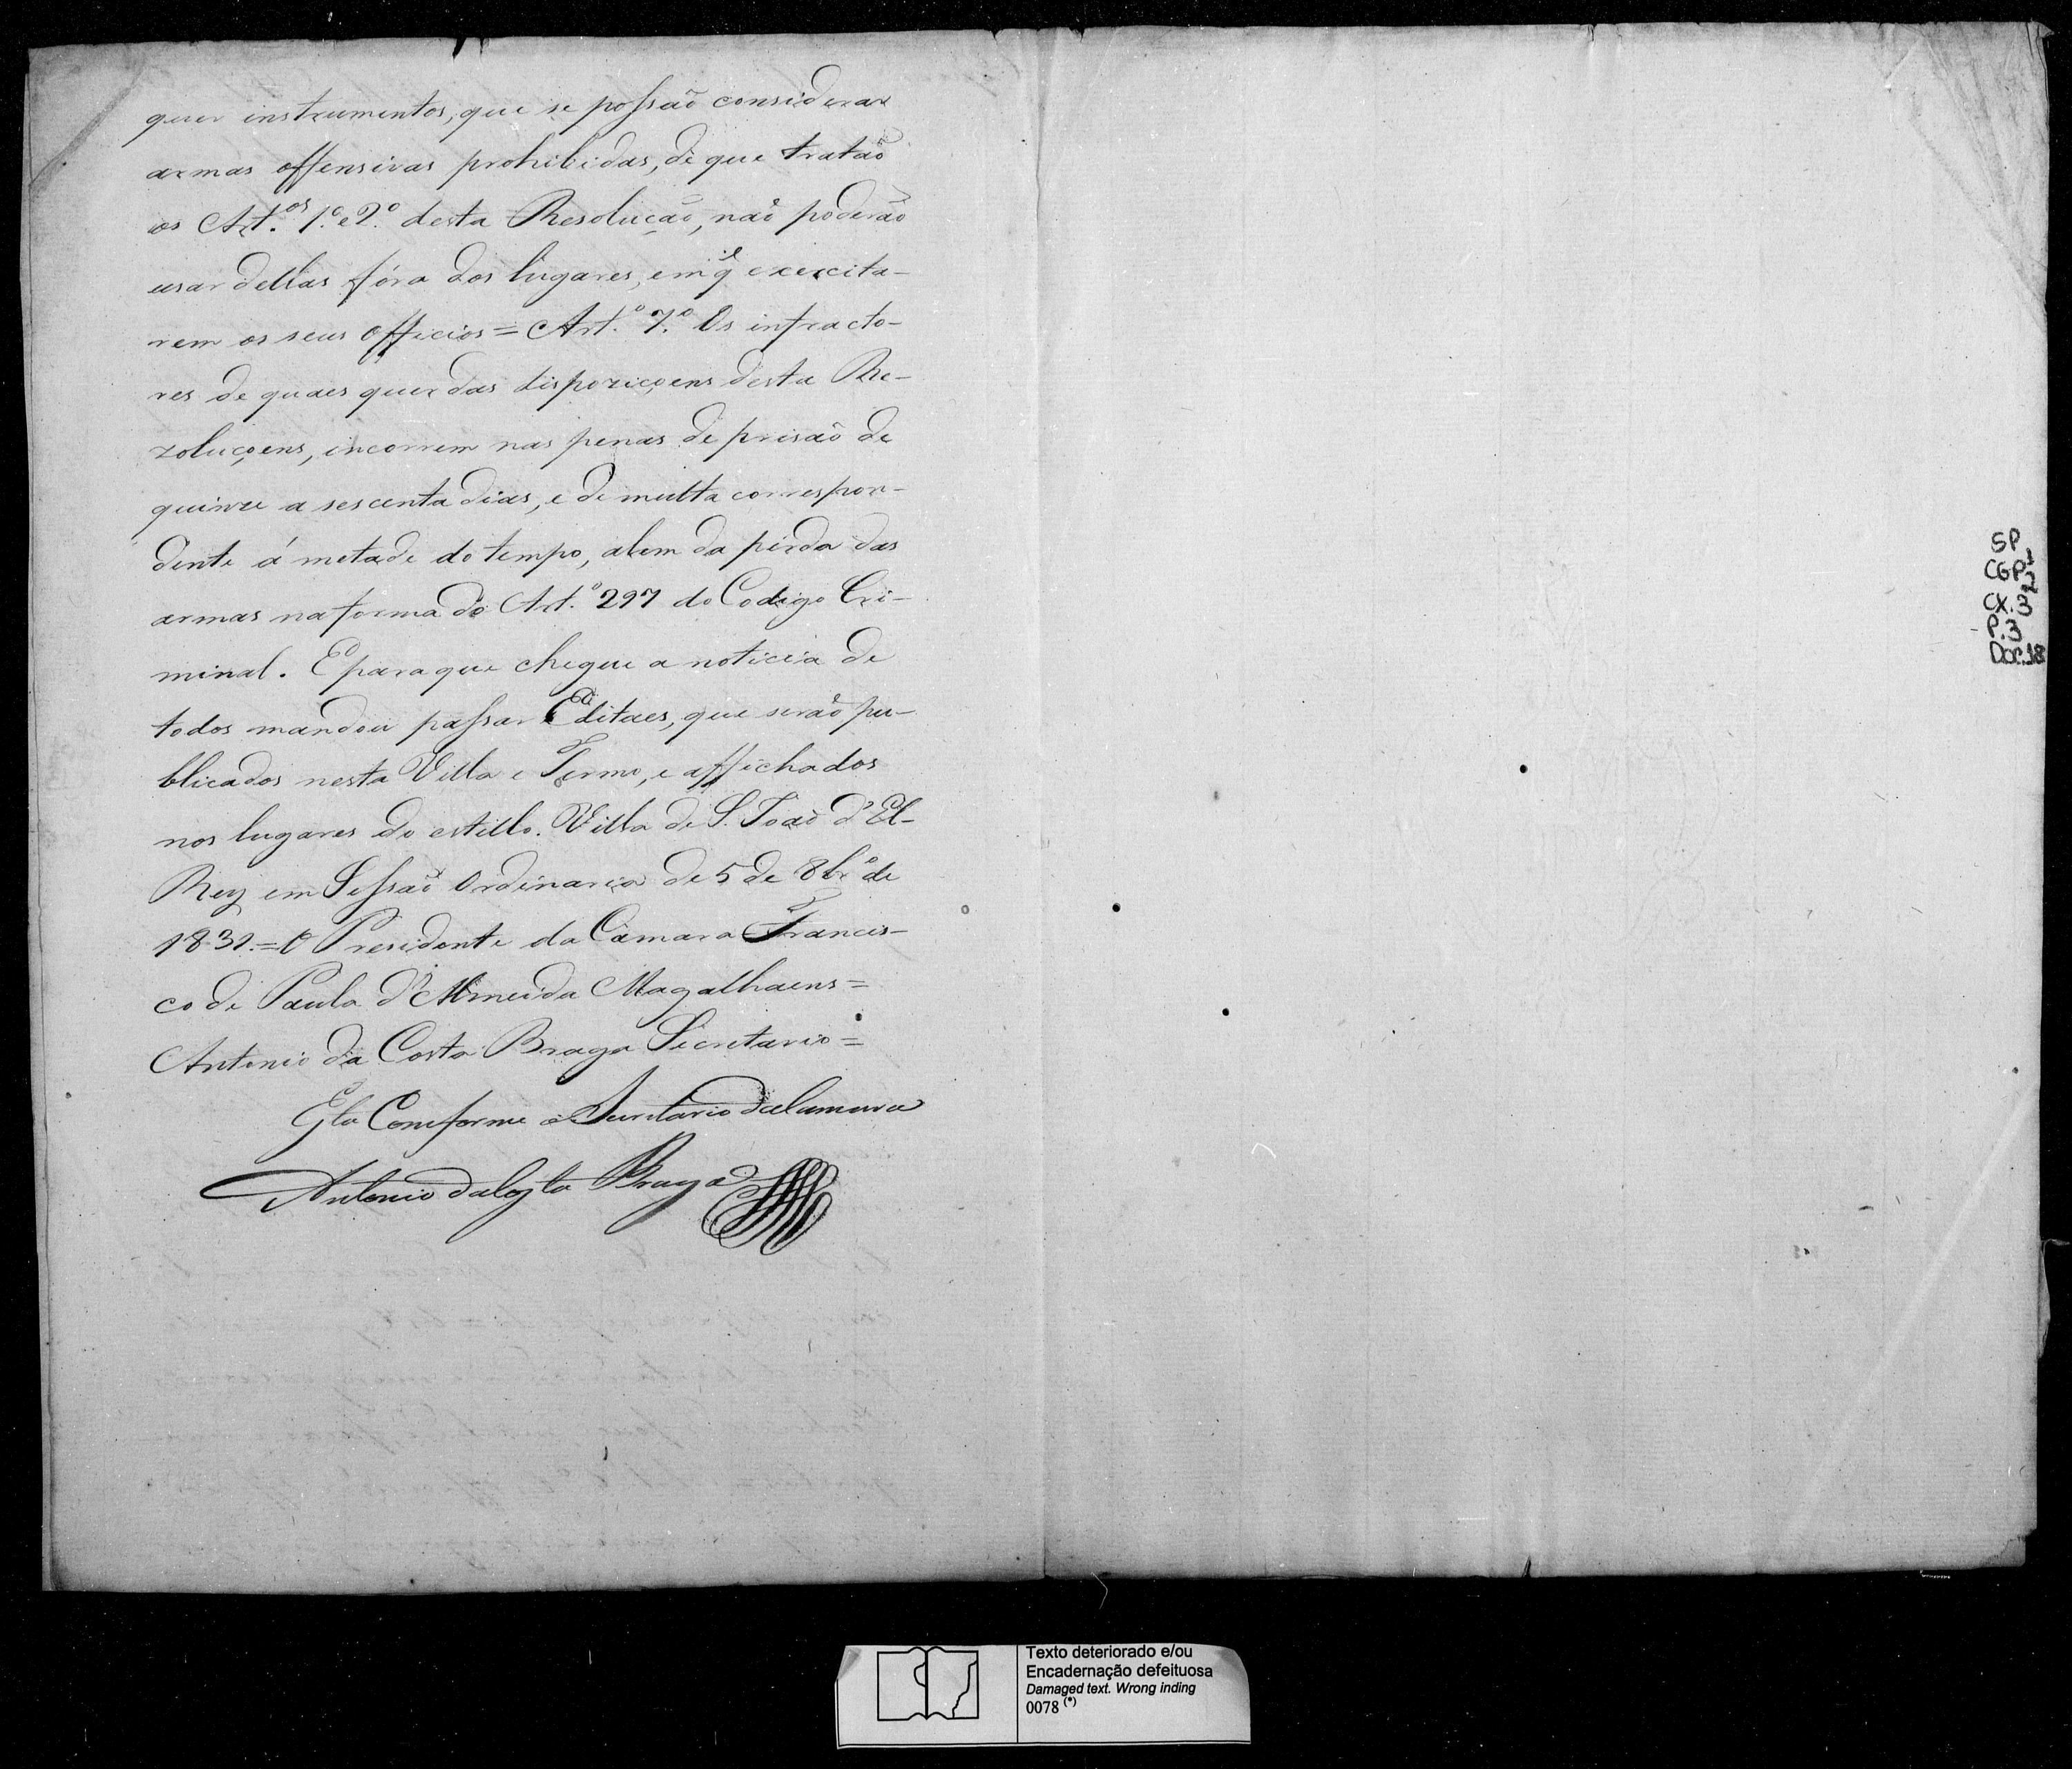 quer instrumentos, que se possaõ considerar
armas offensivas prohibidas, de que trataõ
os Art.os 1.º e 2.º desta Resoluçaõ, naõ poderaõ
usar dellas fóra dos lugares, em q̃ exercita-
rem os seus officios = Art.º 7.º Os infracto-
res de quaes quer das dispoziçoens desta Re-
zoluçoens, incorrem nas penas de prisaõ de
quinze a sescenta dias, e de multa correspon-
dente á metade do tempo, alem da perda das
armas na forma do Art.º 297 do Codigo Cri-
minal. E para que chegue a noticia de
todos mandou passar Editaes, que seraõ pu-
blicados nesta Villa e Termo, e affichados
nos lugares do estillo. Villa de S. Joaõ d'El-
Rey em Sessaõ Ordinaria de 5 de 8br.º de
1831. = O Presidente da Camara Francis-
co de Paula d'Almeida Magalhaens =
Antonio da Costa Braga Secretario =
Esta Conforme o Secretario da Camara
Antonio da Costa Braga
SP
CGP1
2
CX.3
P.3
Doc.18
Texto deteriorado e/ou
Encadernação defeituosa
Damaged text. Wrong inding
0078 (*)